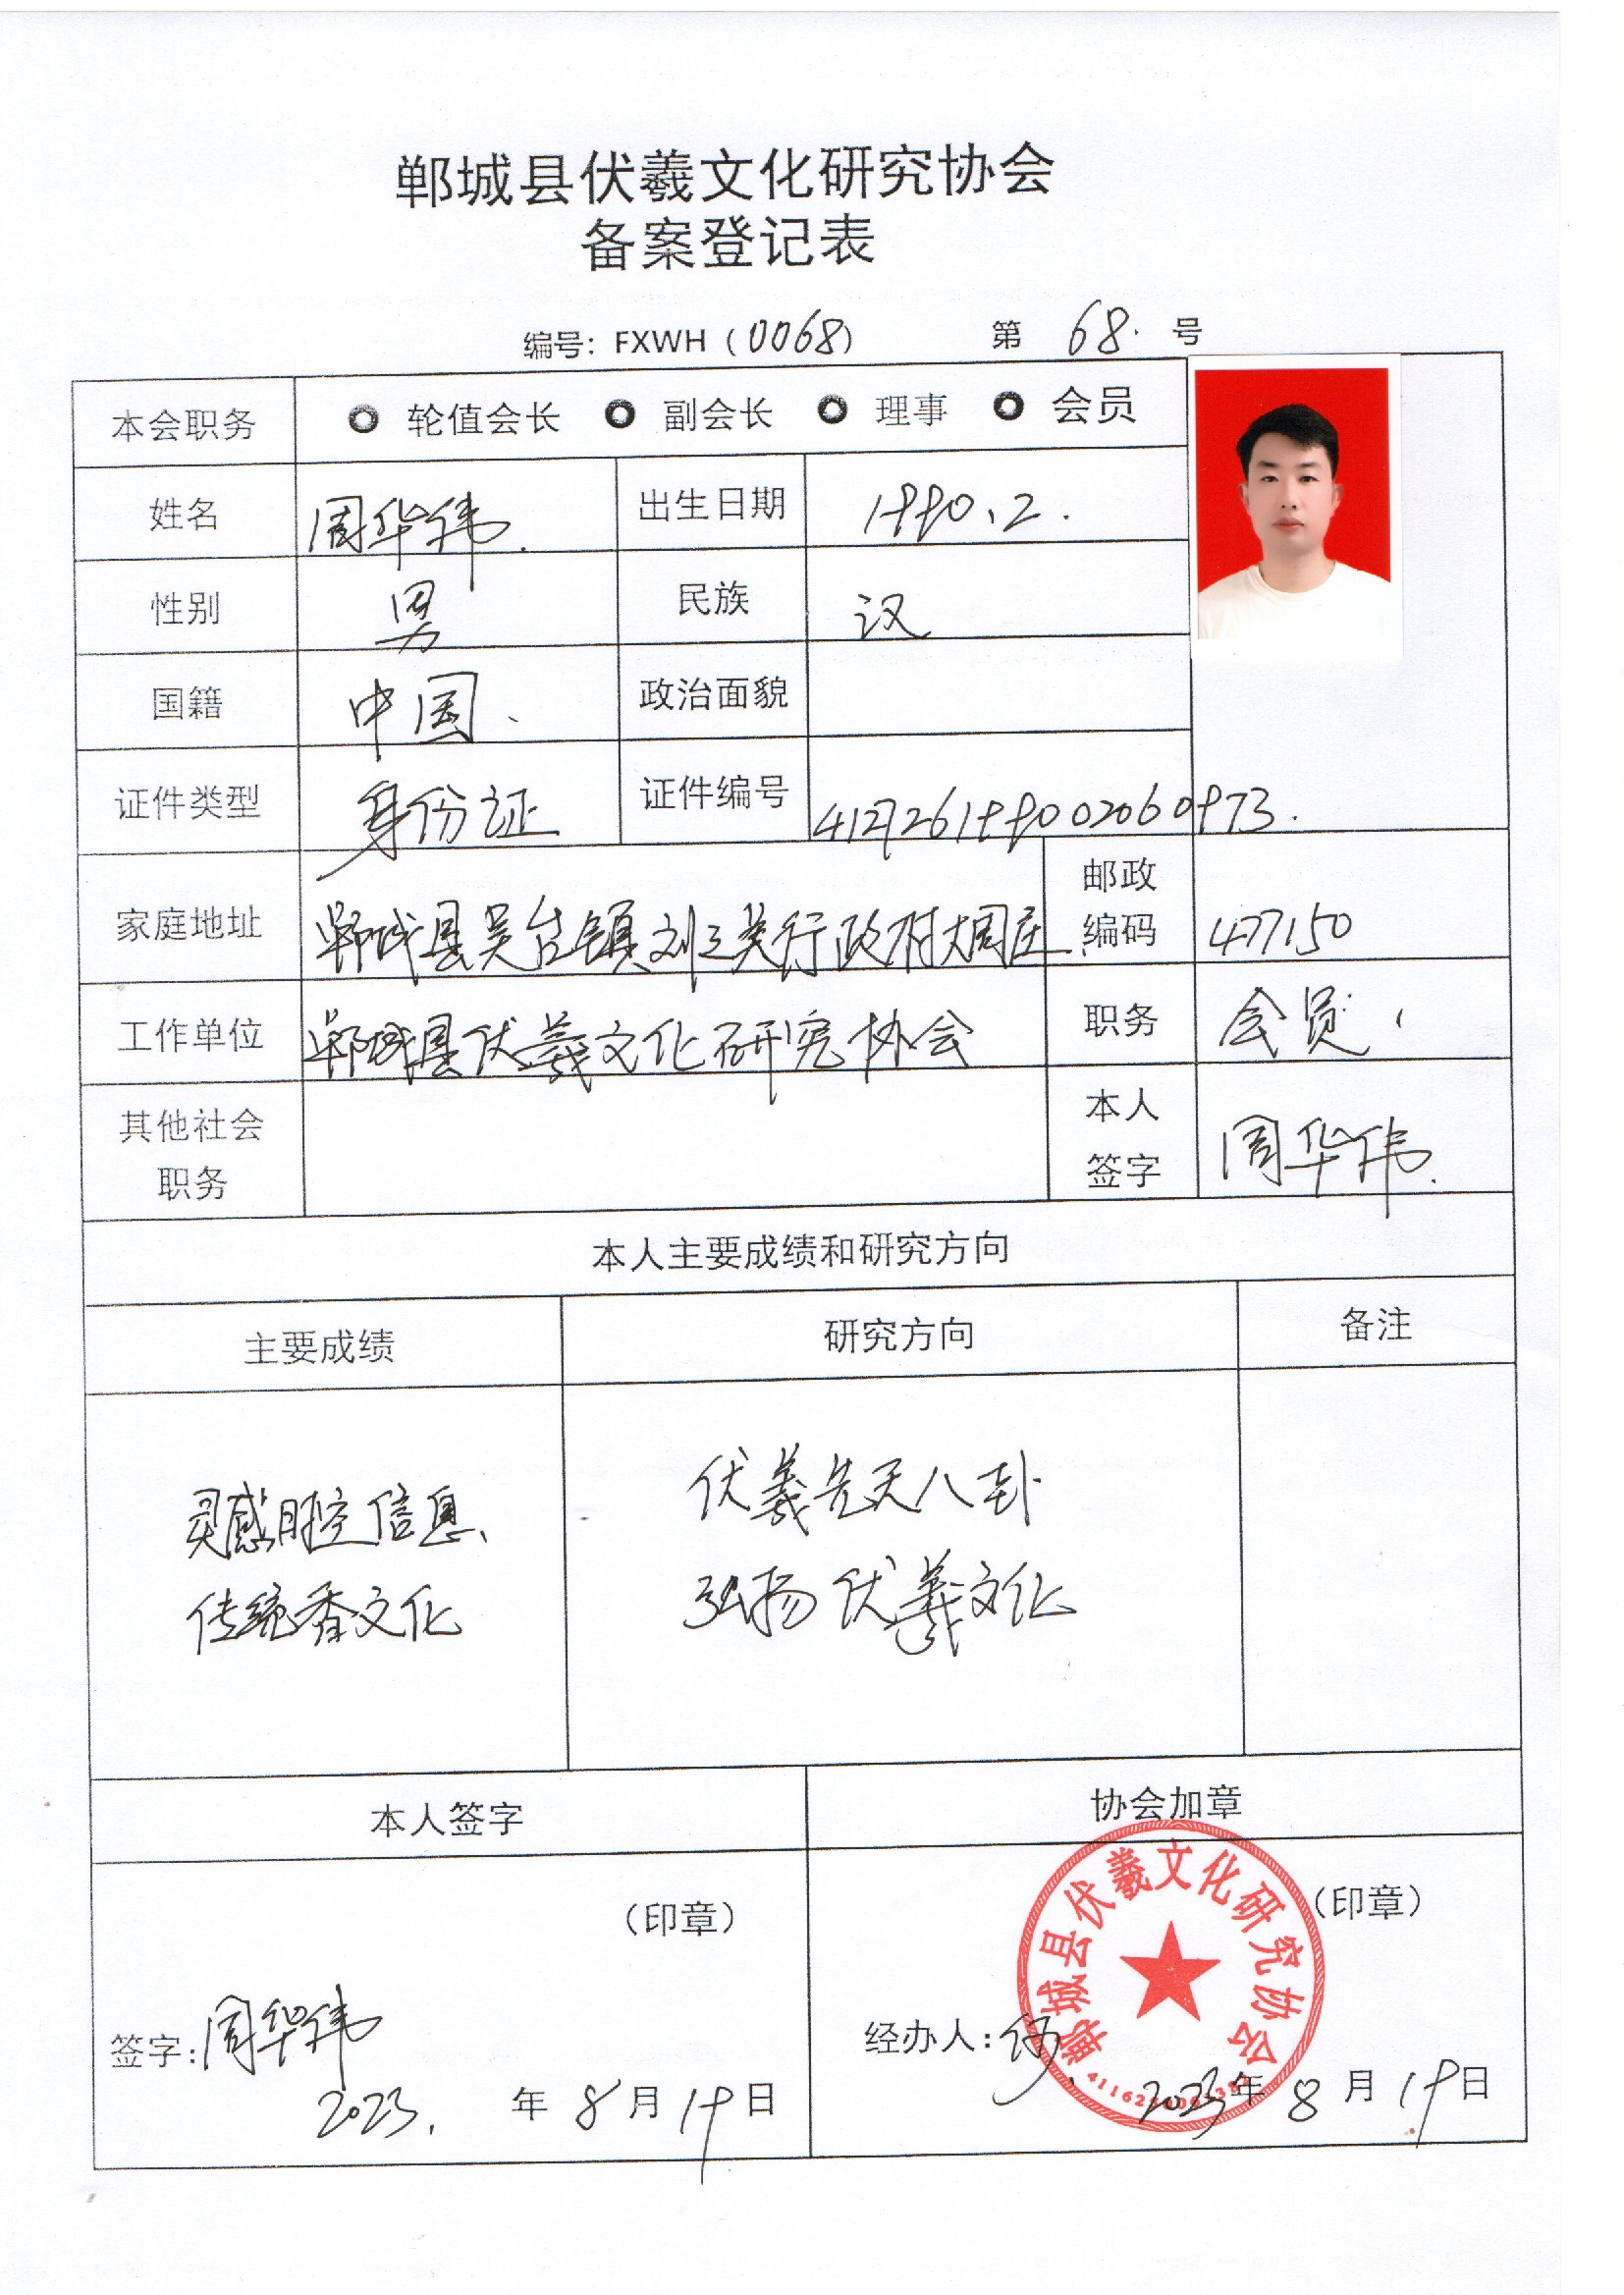 郸城县伏羲文化研究协会
备案登记表
编号：FXWH（0068） 第 68. 号
本会职务 轮值会长 副会长 理事 会员
姓名 周华伟. 出生日期 1990.2.
性别 男 民族 汉
国籍 中国. 政治面貌
证件类型 身份证 证件编号 412726199002060973.
家庭地址 郸城县吴台镇刘立关行政村大周庄 邮政编码 477150
工作单位 郸城县伏羲文化研究协会 职务 会员.
其他社会职务 本人签字 周华伟.
本人主要成绩和研究方向
主要成绩 研究方向 备注
灵感时空信息、
传统香文化
伏羲先天八卦
弘扬伏羲文化
本人签字 协会加章
（印章） （印章）
郸城县伏羲文化研究协会
签字：周华伟 经办人：
2023. 年 8 月 19 日 2023 年 8 月 19 日